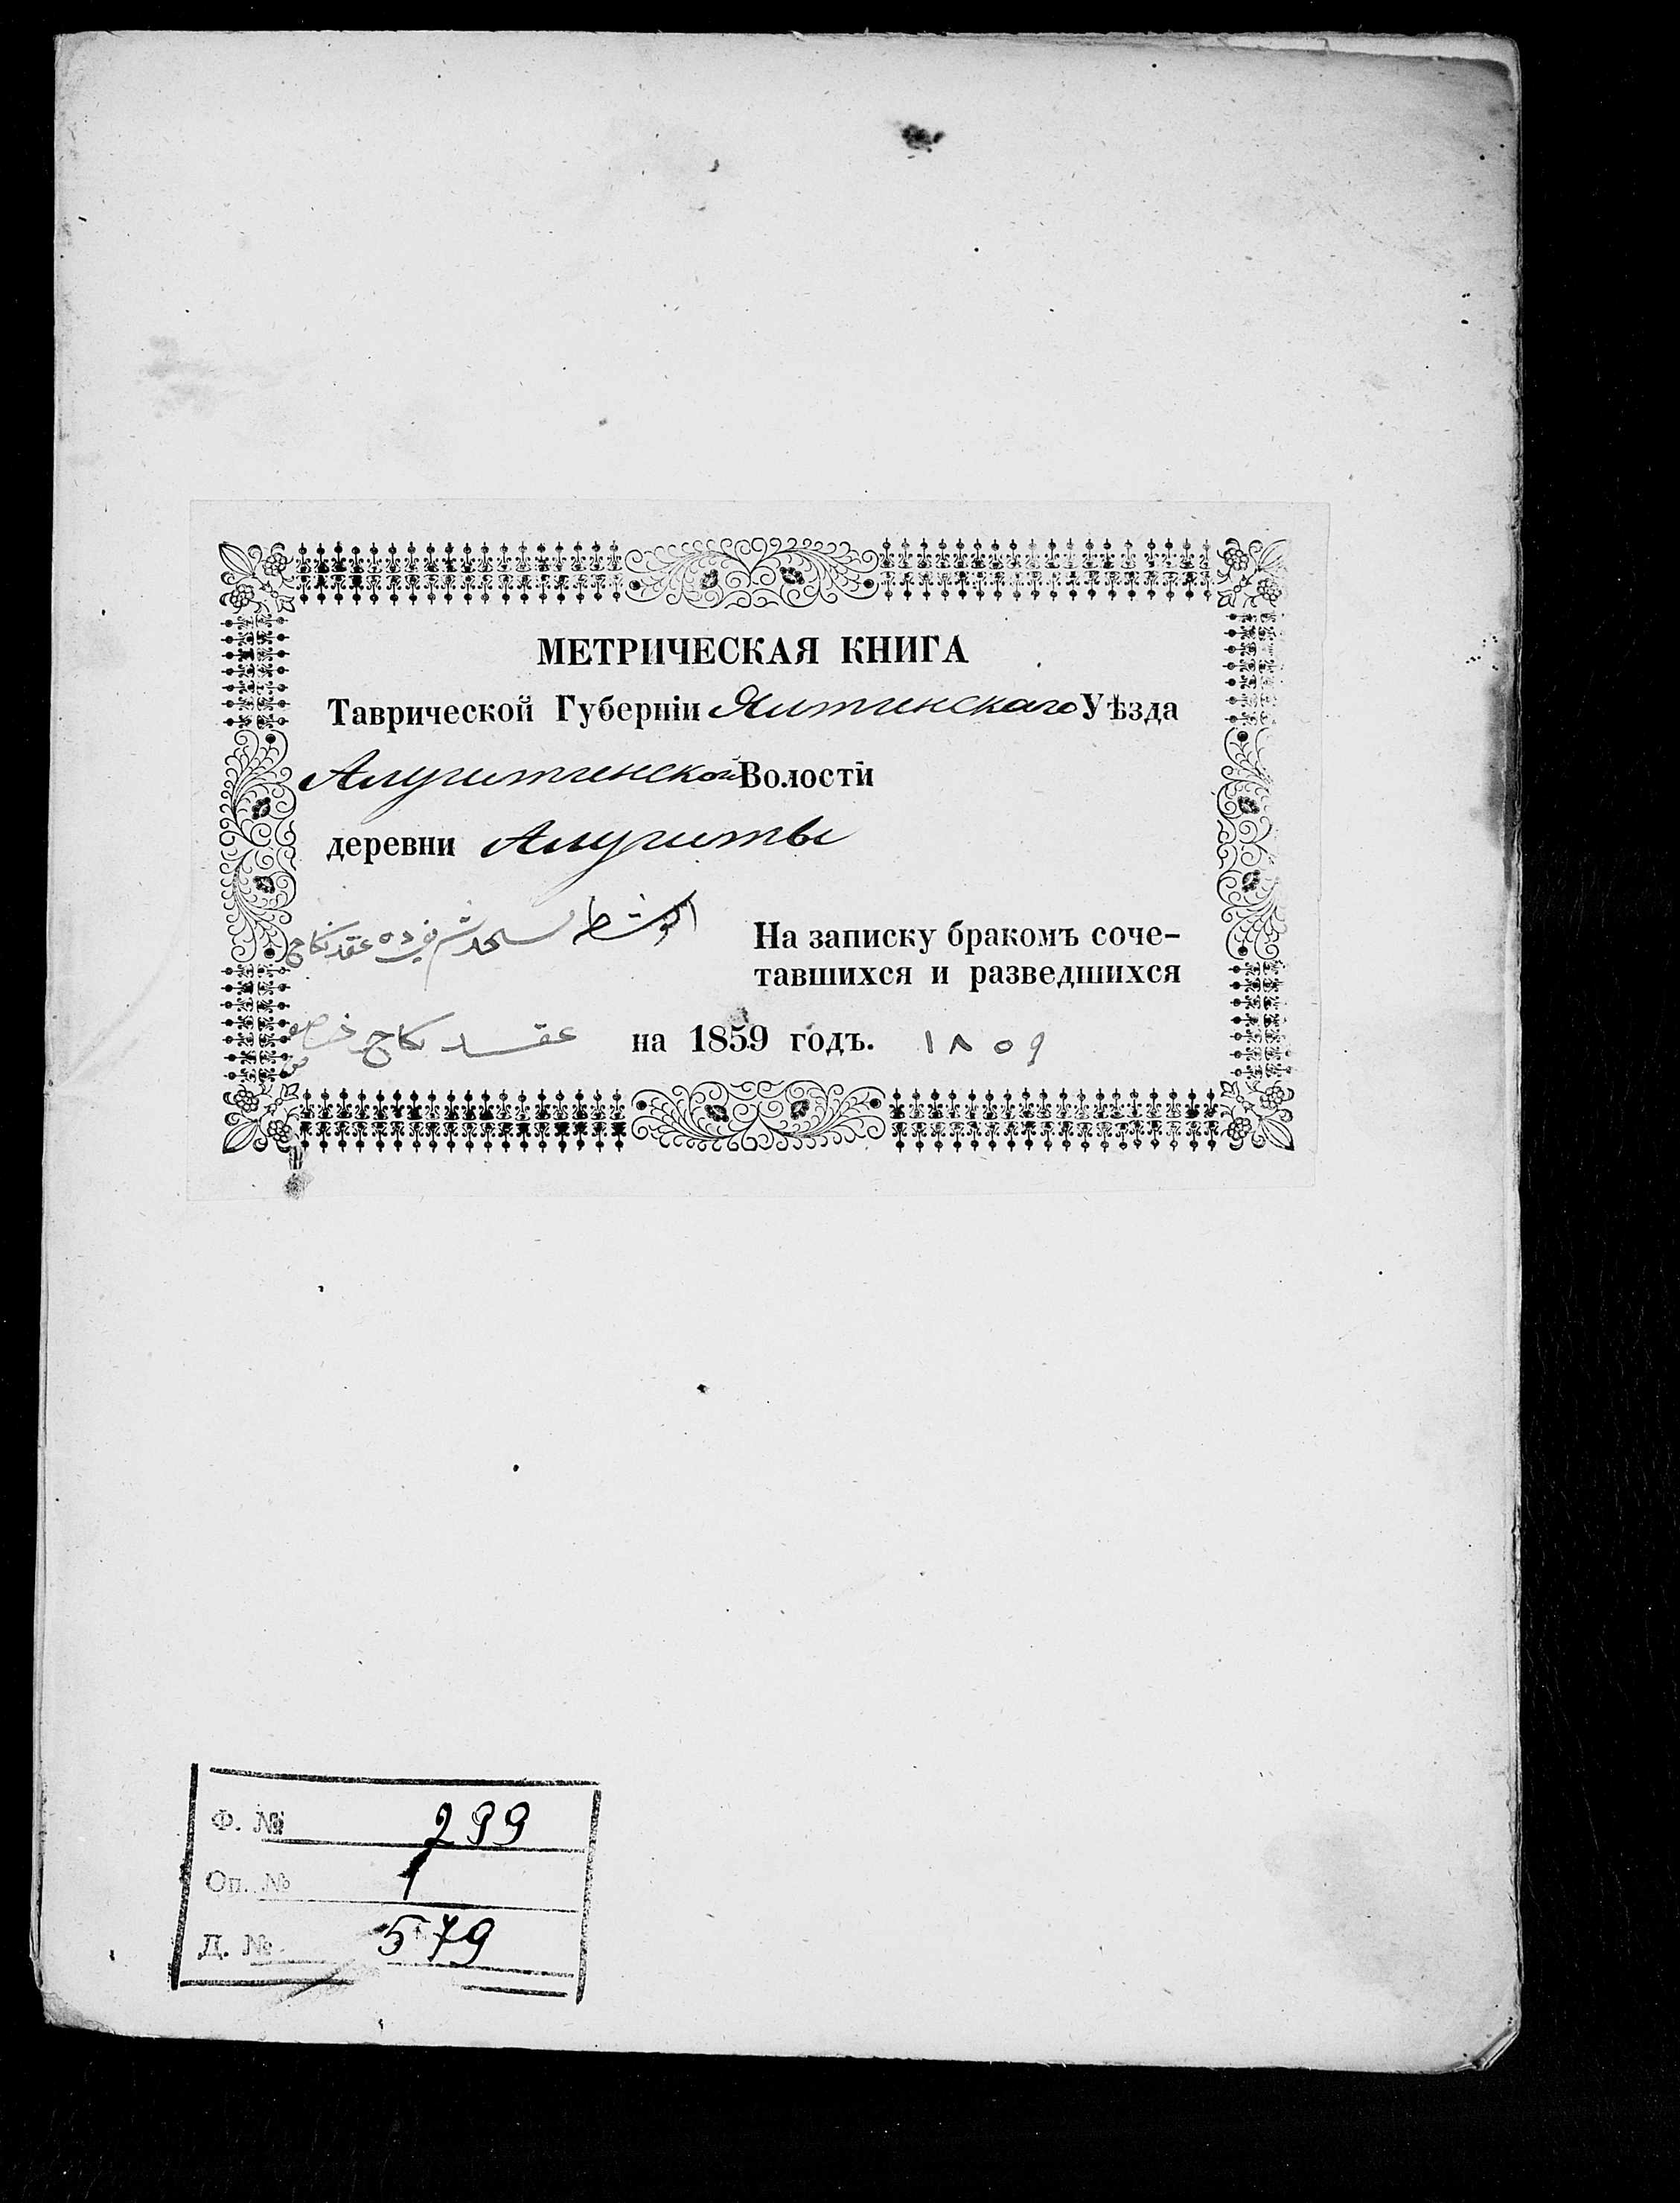 МЕТРИЧЕСКАЯ КНИГА
Таврической Губернiи Ялтинскаго Уѣзда
Алуштинской Волости
деревни Алушты
عقد نكاح
На записку бракомъ соче-
тавшихся и разведшихся
عقد نكاح
на 1859 годъ. ١٨٥٩
Ф. № 299
Оп. № 1
Д. № 579